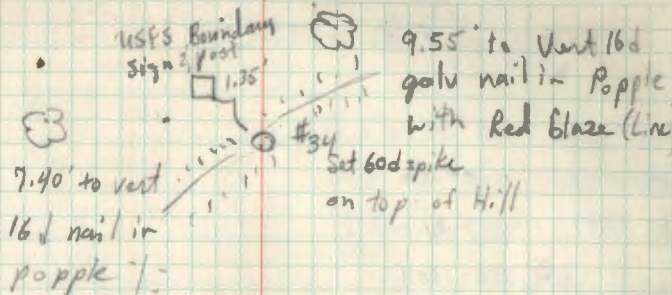 USFS Boundary
Sign & post
1.35'
9.55' to Vert 16d
galv nail in Popple
with Red Blaze (Line
#34
Set 60d spike
on top of Hill
7.40' to vert
16d nail in
popple